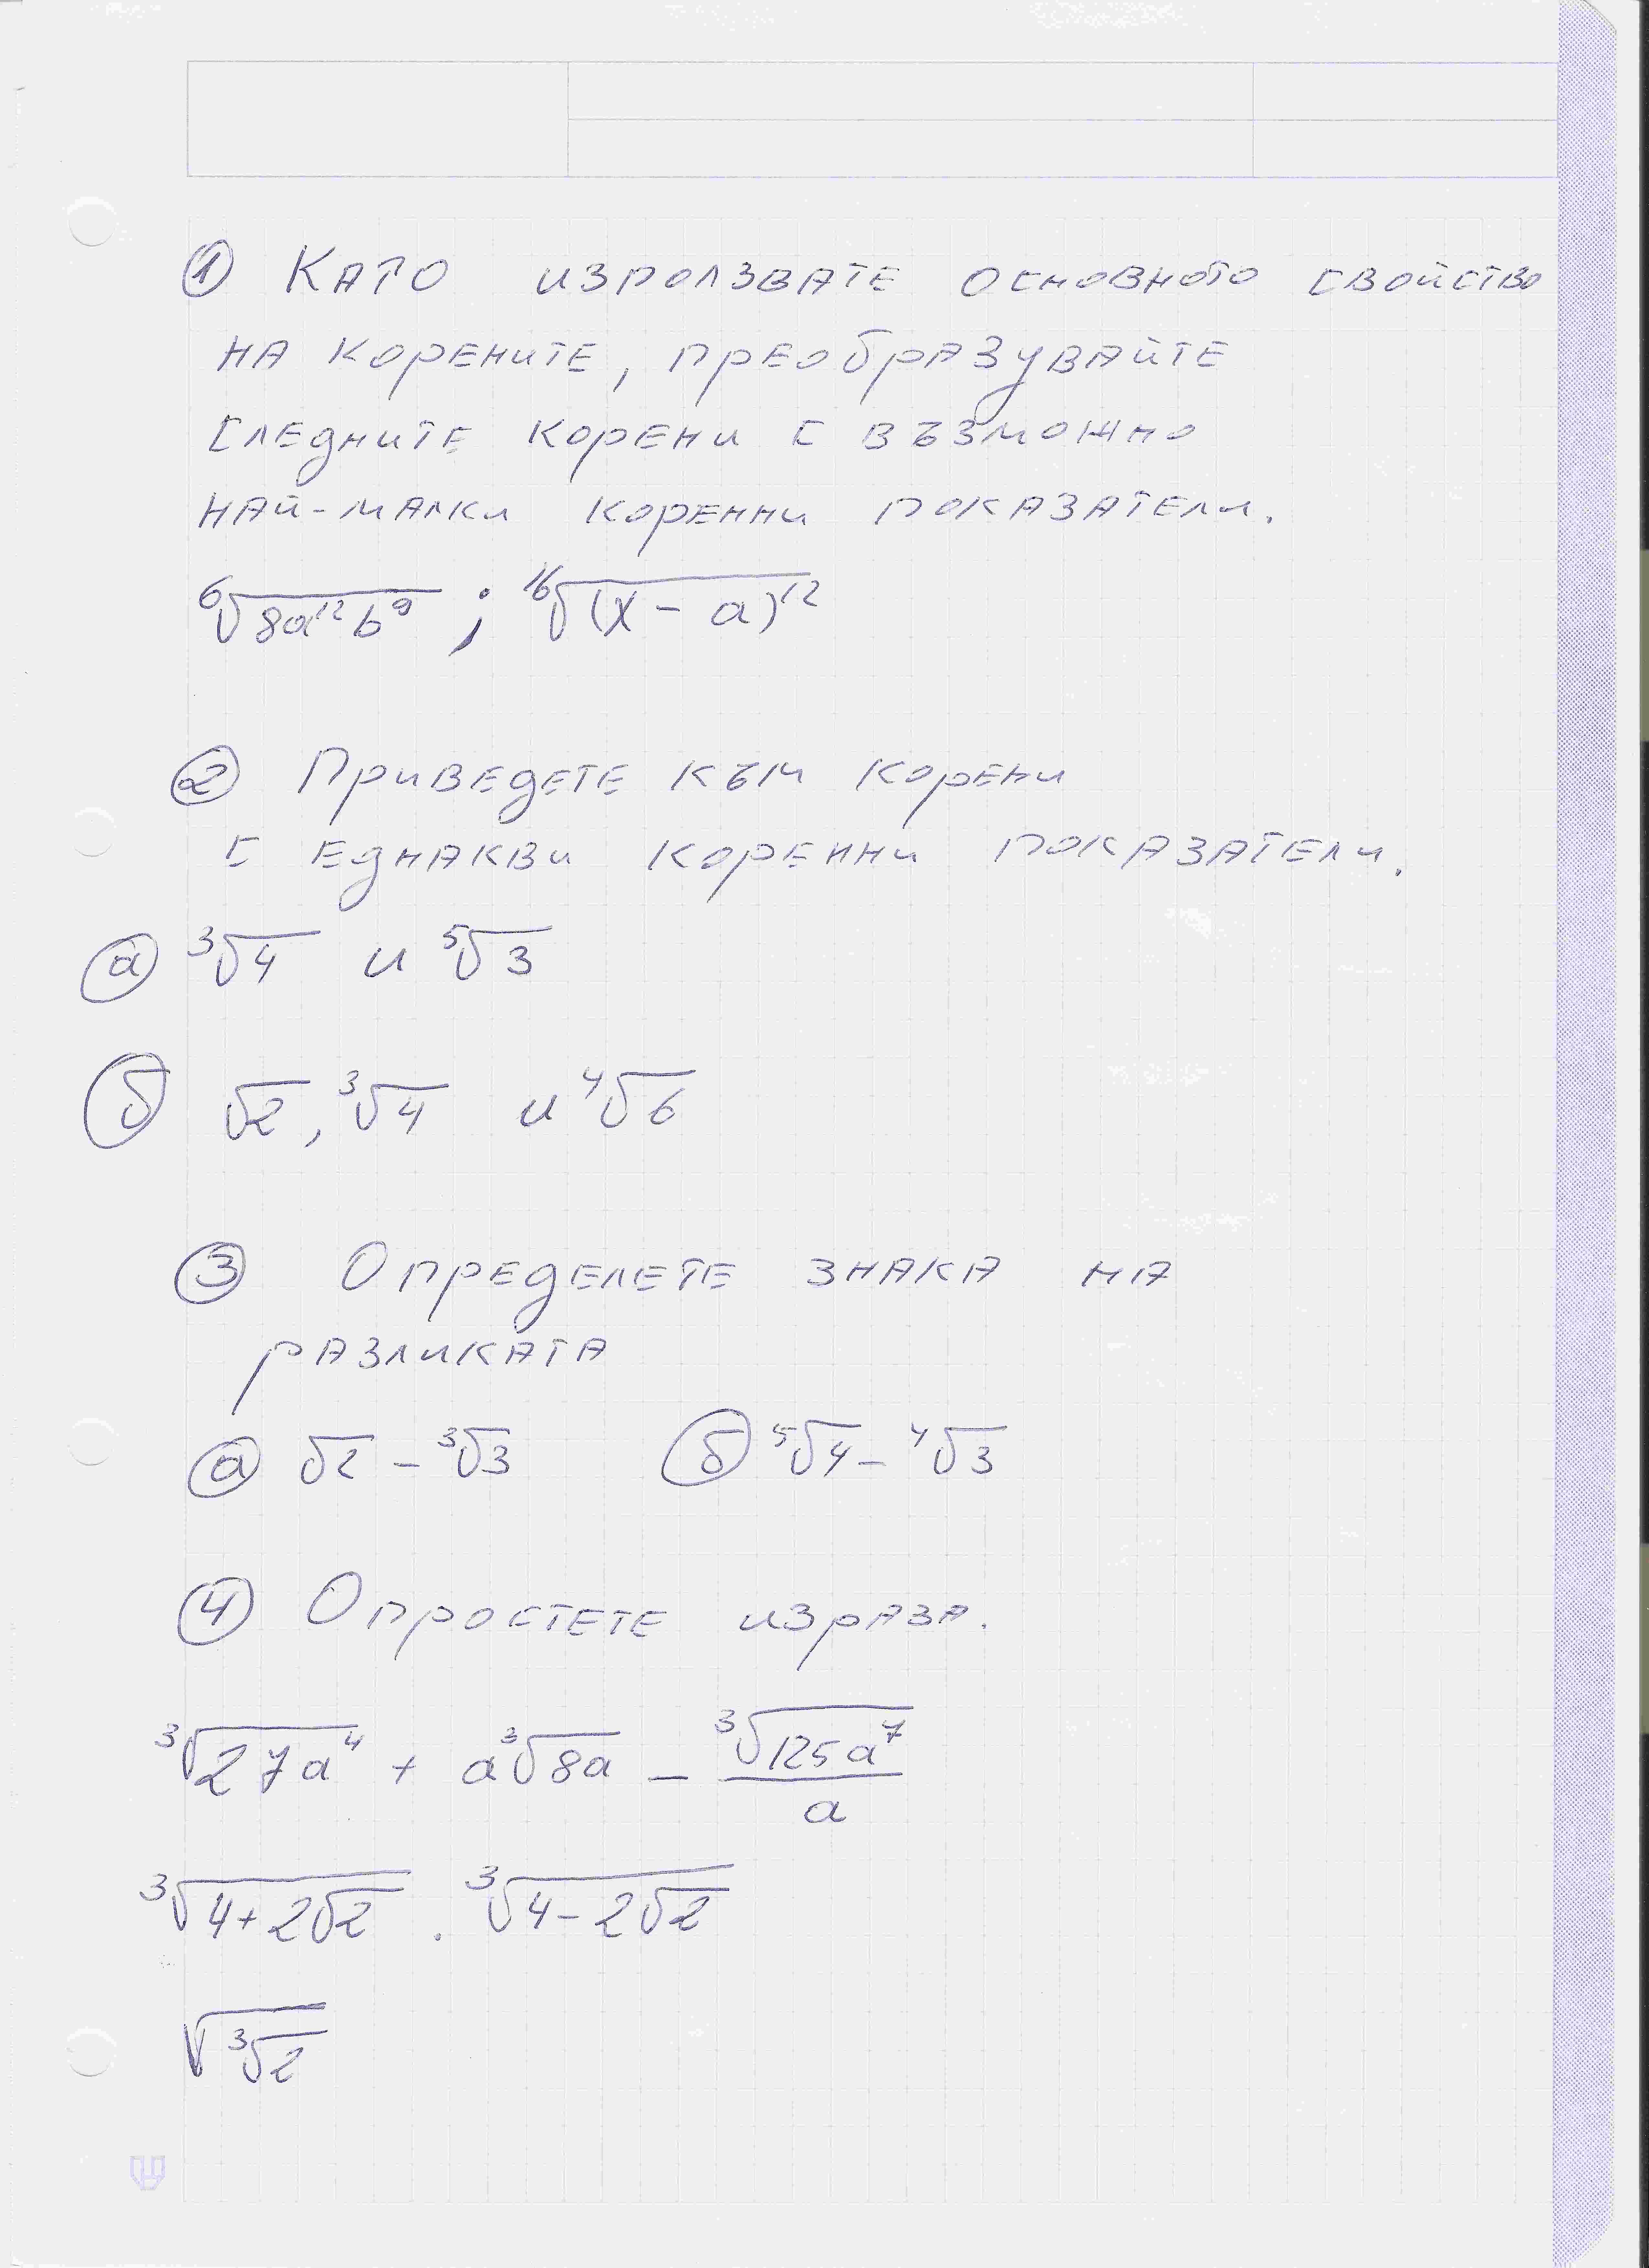 ① Като използвате основното свойство
на корените, преобразувайте
следните корени с възможно
най-малки коренни показатели.
⁶√(8a¹²b⁹) ; ¹⁶√((x - a)¹²)
② Приведете към корени
с еднакви коренни показатели.
ⓐ ³√4 и ⁵√3
ⓑ √2, ³√4 и ⁴√6
③ Определете знака на
разликата
ⓐ √2 - ³√3 ⓑ ⁵√4 - ⁴√3
④ Опростете израза.
³√(27a⁴) + a³√(8a) - ³√(125a⁷)/a
³√(4+2√2) . ³√(4-2√2)
√(³√2)